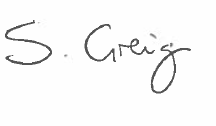 S. Greig